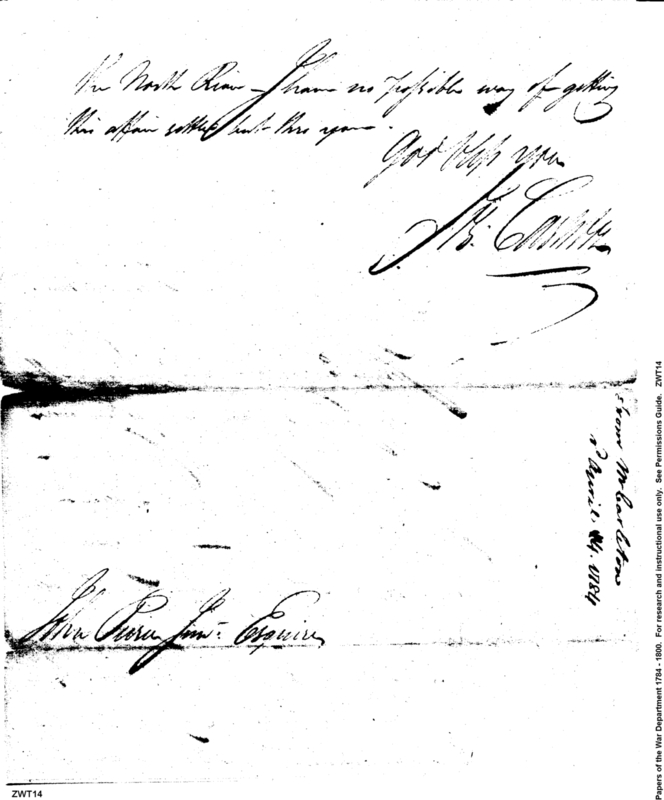 the North River – I have no possible way of getting
this affair settled but this
God bless you
Jos. Carleton
from Mr Carleton
April 1784
John Pierce Junr. Esquire
ZWT14
Papers of the War Department 1784 - 1800. For research and instructional use only. See Permissions Guide. ZWT14